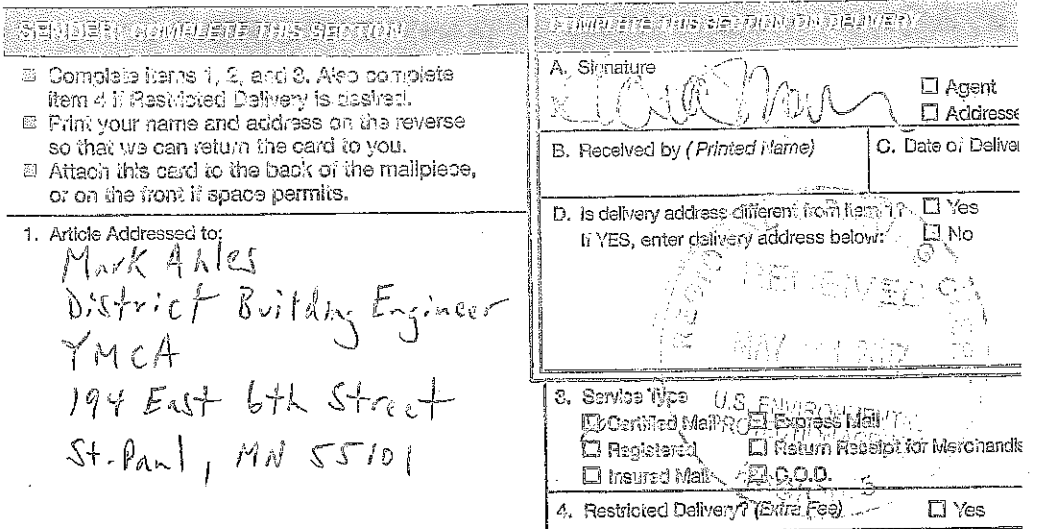 SENDER: COMPLETE THIS SECTION
Complete items 1, 2, and 3. Also complete
item 4 if Restricted Delivery is desired.
Print your name and address on the reverse
so that we can return the card to you.
Attach this card to the back of the mailpiece,
or on the front if space permits.
1. Article Addressed to:
Mark Ahles
District Building Engineer
YMCA
194 East 6th Street
St. Paul, MN 55101
COMPLETE THIS SECTION ON DELIVERY
A. Signature
X
Agent
Addresse
B. Received by (Printed Name)
C. Date of Deliver
D. Is delivery address different from item 1? Yes
If YES, enter delivery address below: No
RECEIVED
MAY
U.S. ENVIRONMENT
3. Service Type
Certified Mail Express Mail
Registered Return Receipt for Merchandis
Insured Mail C.O.D.
4. Restricted Delivery? (Extra Fee) Yes